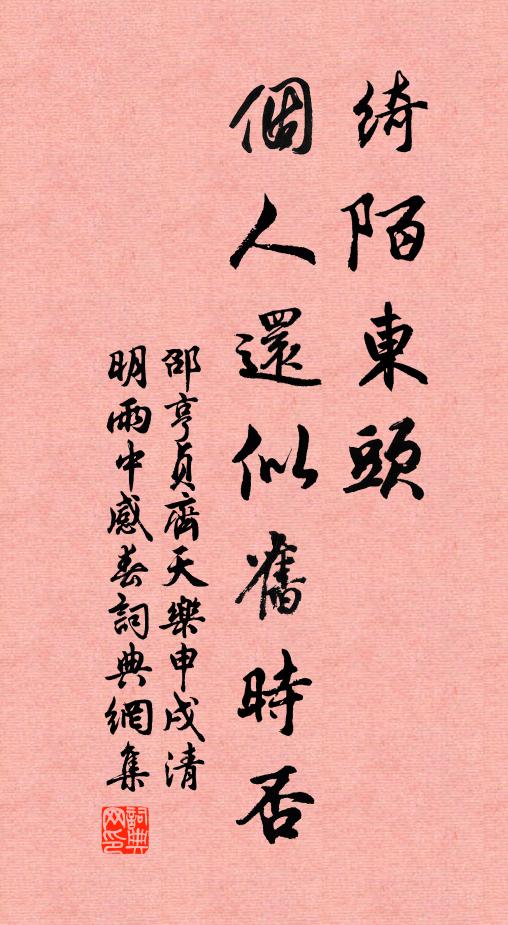 綺陌東頭
個人還似舊時否
邵亨貞齊天樂申戌清
明雨中感春詞典網集
詞典
网印